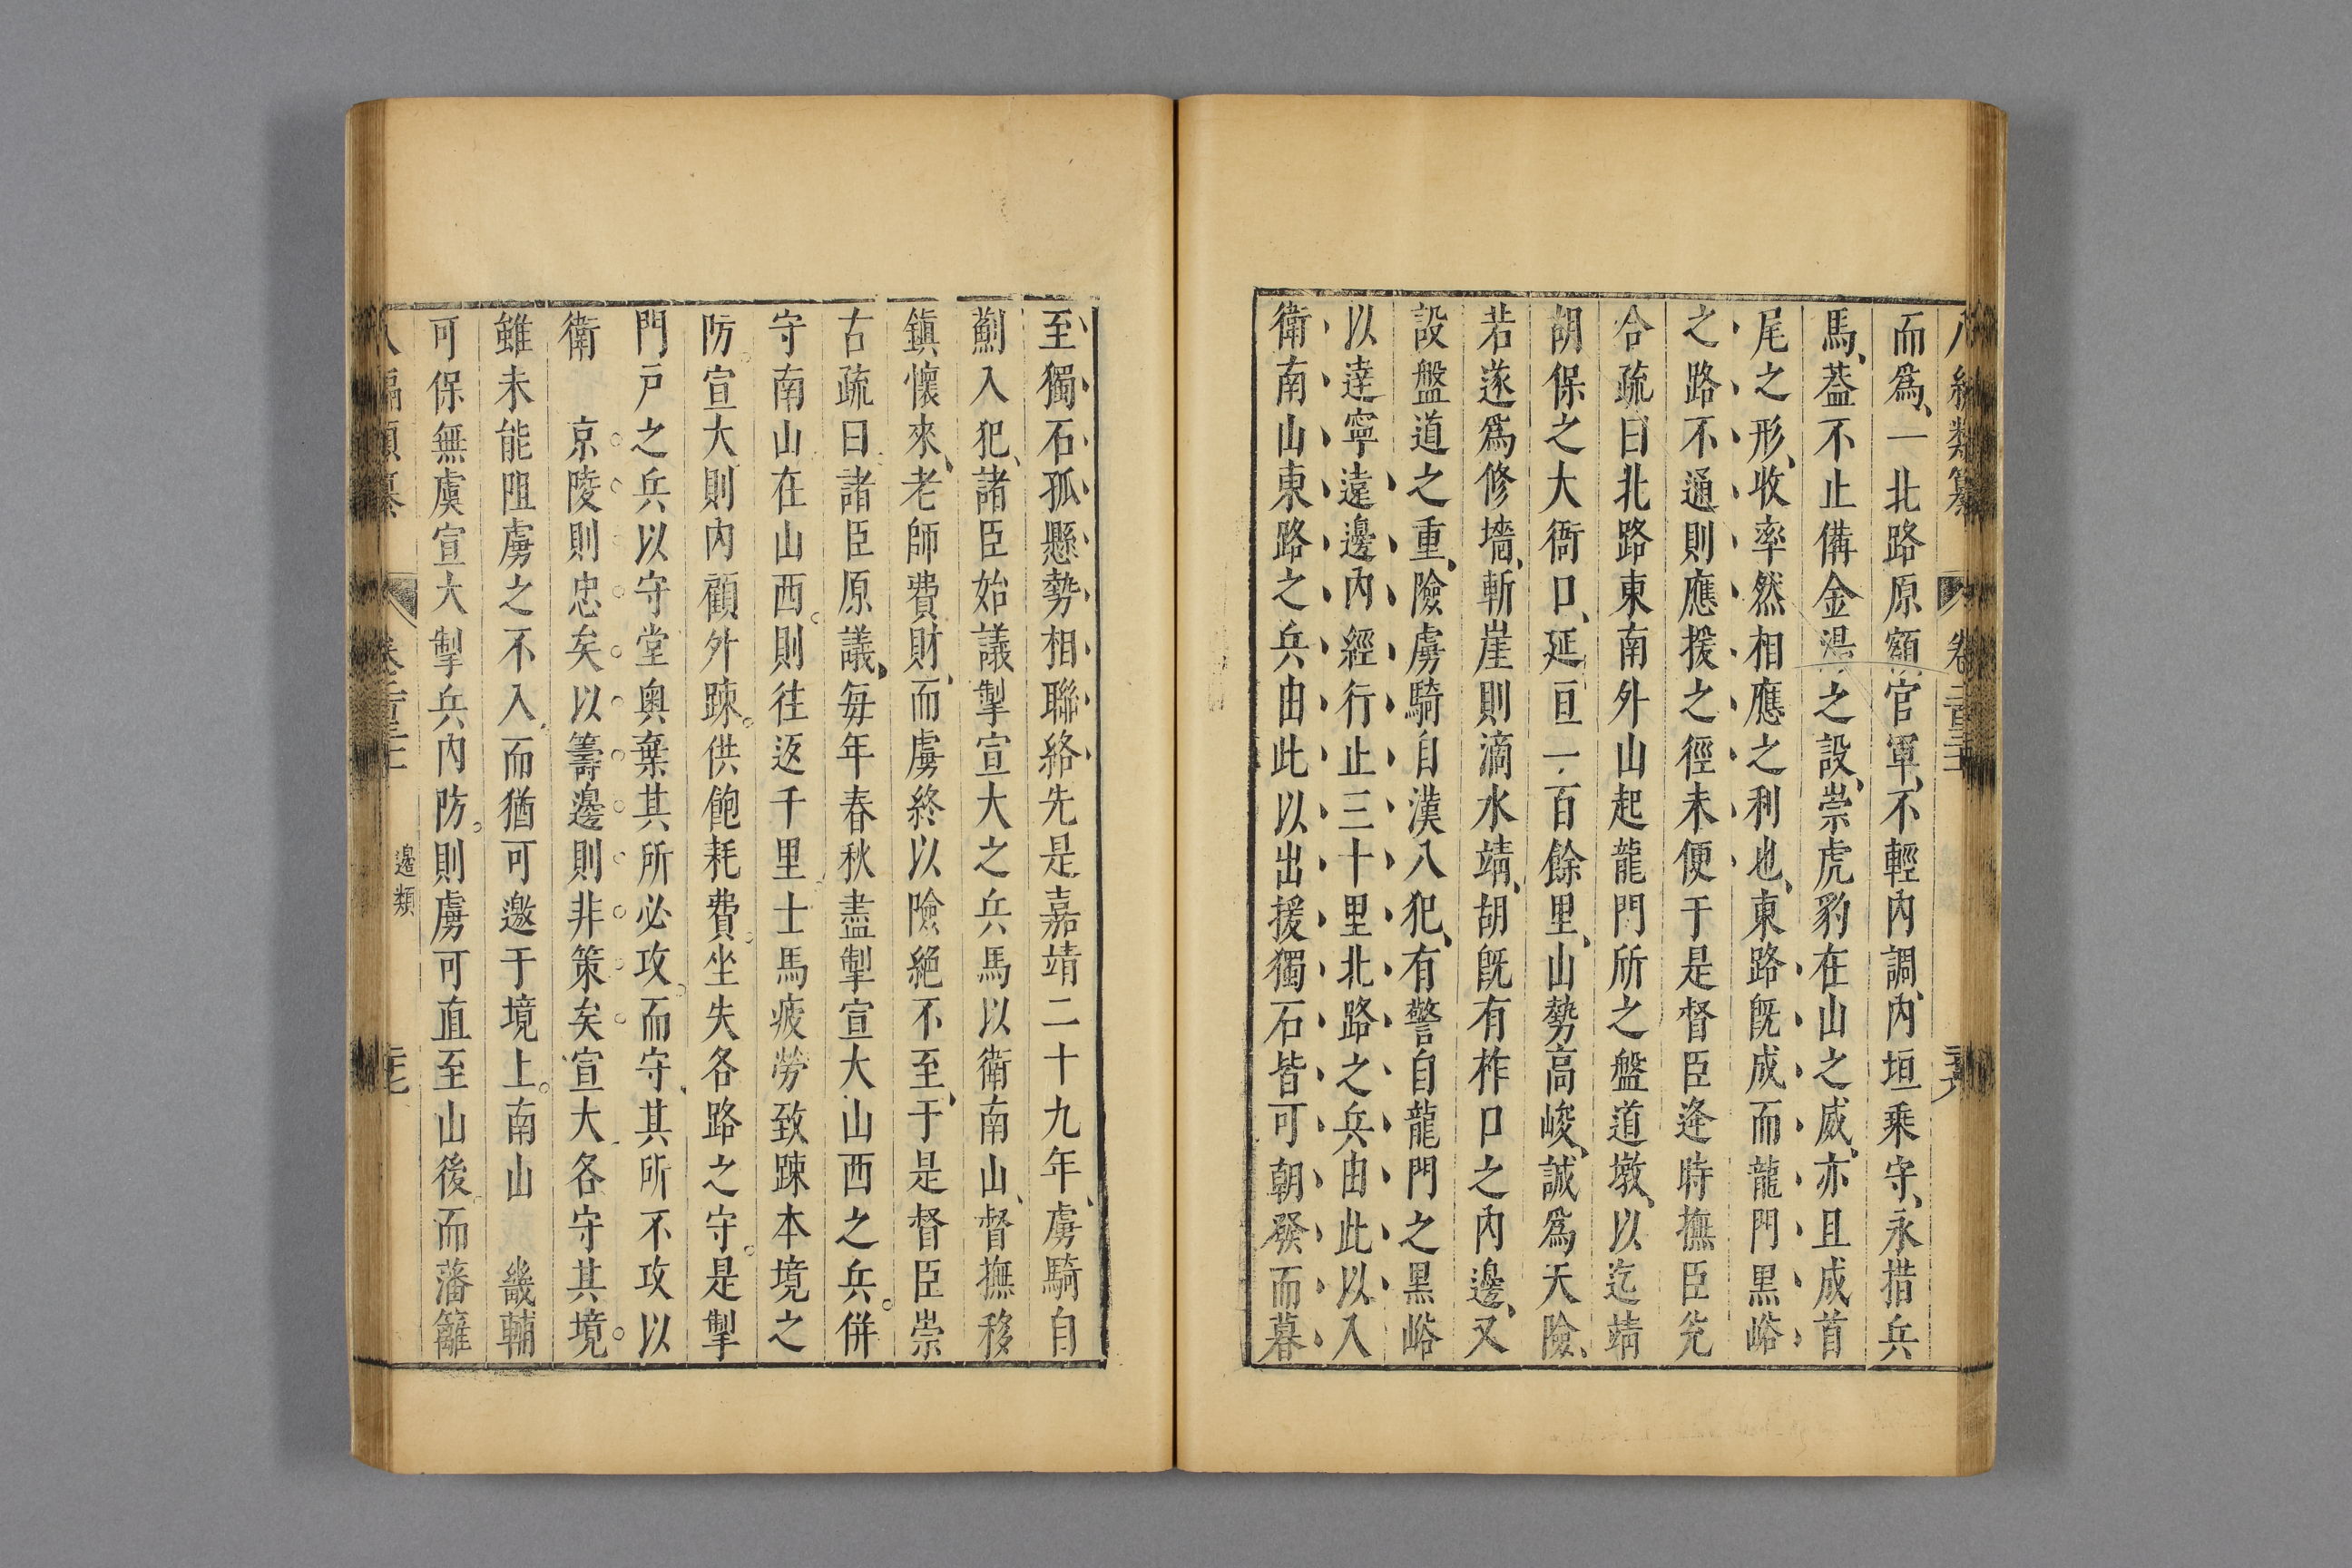 而爲一北路原額官軍不輕內調內垣乘守永措兵
馬葢不止備金湯之設崇虎豹在山之威亦且成首
尾之形收率然相應之利也東路旣成而龍門黑峪
之路不通則應援之徑未便于是督臣逄時撫臣兊
合疏曰北路東南外山起龍門所之盤道墩以迄靖
胡保之大衙口延亘一百餘里山勢高峻誠爲天險
若遂爲修墻斬崖則滴水靖胡旣有柞口之內邊又
設盤道之重險虜騎自漢入犯有警自龍門之黒峪
以達寧遠邊內經行止三十里北路之兵由此以入
衛南山東路之兵由此以出援獨石皆可朝發而暮
至獨石孤懸勢相聯絡先是嘉靖二十九年虜騎自
薊入犯諸臣始議掣宣大之兵馬以衛南山督撫移
鎮懷來老師費財而虜終以險絕不至于是督臣崇
古疏曰諸臣原議每年春秋盡掣宣大山西之兵併
守南山在山西則往返千里士馬疲勞致踈本境之
防宣大則內顧外踈供飽耗費坐失各路之守是掣
門戸之兵以守堂奥棄其所必攻而守其所不攻以
衛　京陵則忠矣以籌邊則非策矣宣大各守其境
雖未能阻虜之不入而猶可邀于境上南山　畿輔
可保無虞宣大掣兵內防則虜可直至山後而藩籬
邊類